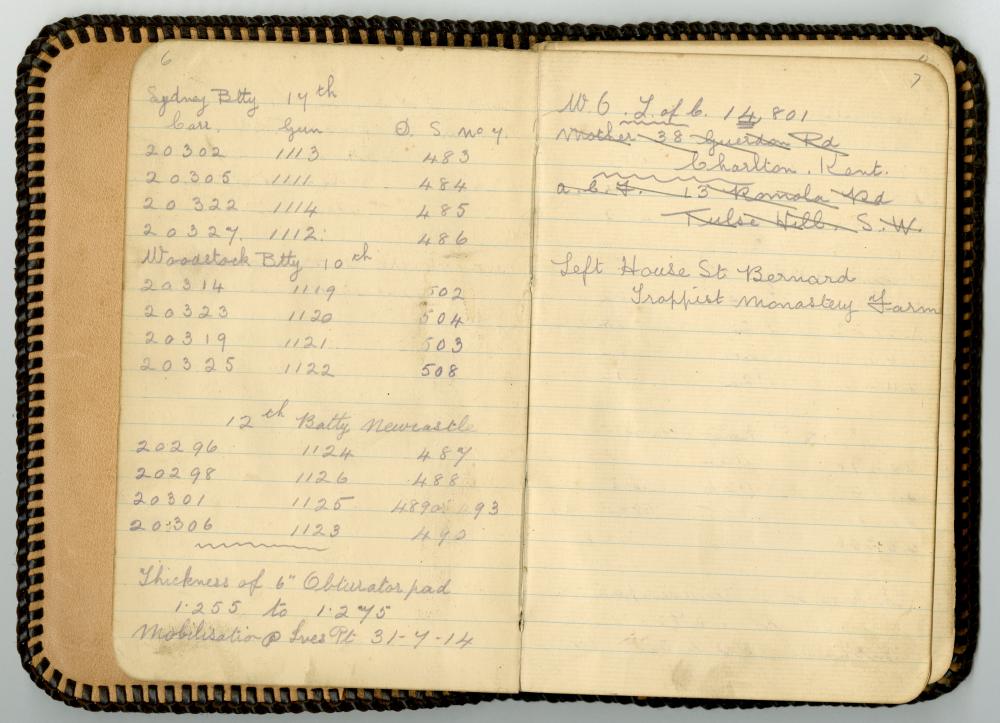 6
Sydney Btty 17th
Carr. Gun O. S. No 7.
20302 1113 483
20305 1111 484
20322 1114 485
20327. 1112. 486
Woodstock Btty 10th
20314 1119 502
20323 1120 504
20319 1121 503
20325 1122 508
12th Batty Newcastle
20296 1124 487
20298 1126 488
20301 1125 93
20306 1123 492
Thickness of 6" Obturator pad
1.255 to 1.275
Mobilisation @ Ives Pt 31-7-14
7
W. O. L. of C. 14,801
Mother 38 Guerdon Rd
Charlton. Kent.
a. C. F. 13 Romola Rd
Tulse Hill. S. W.
Left House St Bernard
Trappist Monastery Farm